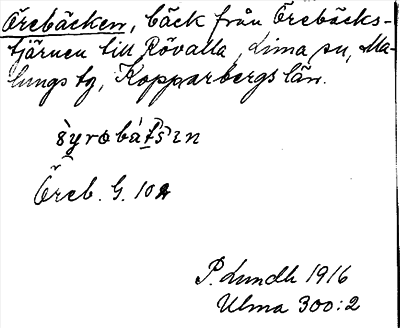 Örebäcken, bäck från Örebäcks-
tjärnen till Rövalla, Lima sn, Ma-
lungs tg, Kopparbergs län.
Öreb. G. 10
P. Lundh 1916
Ulma 300:2